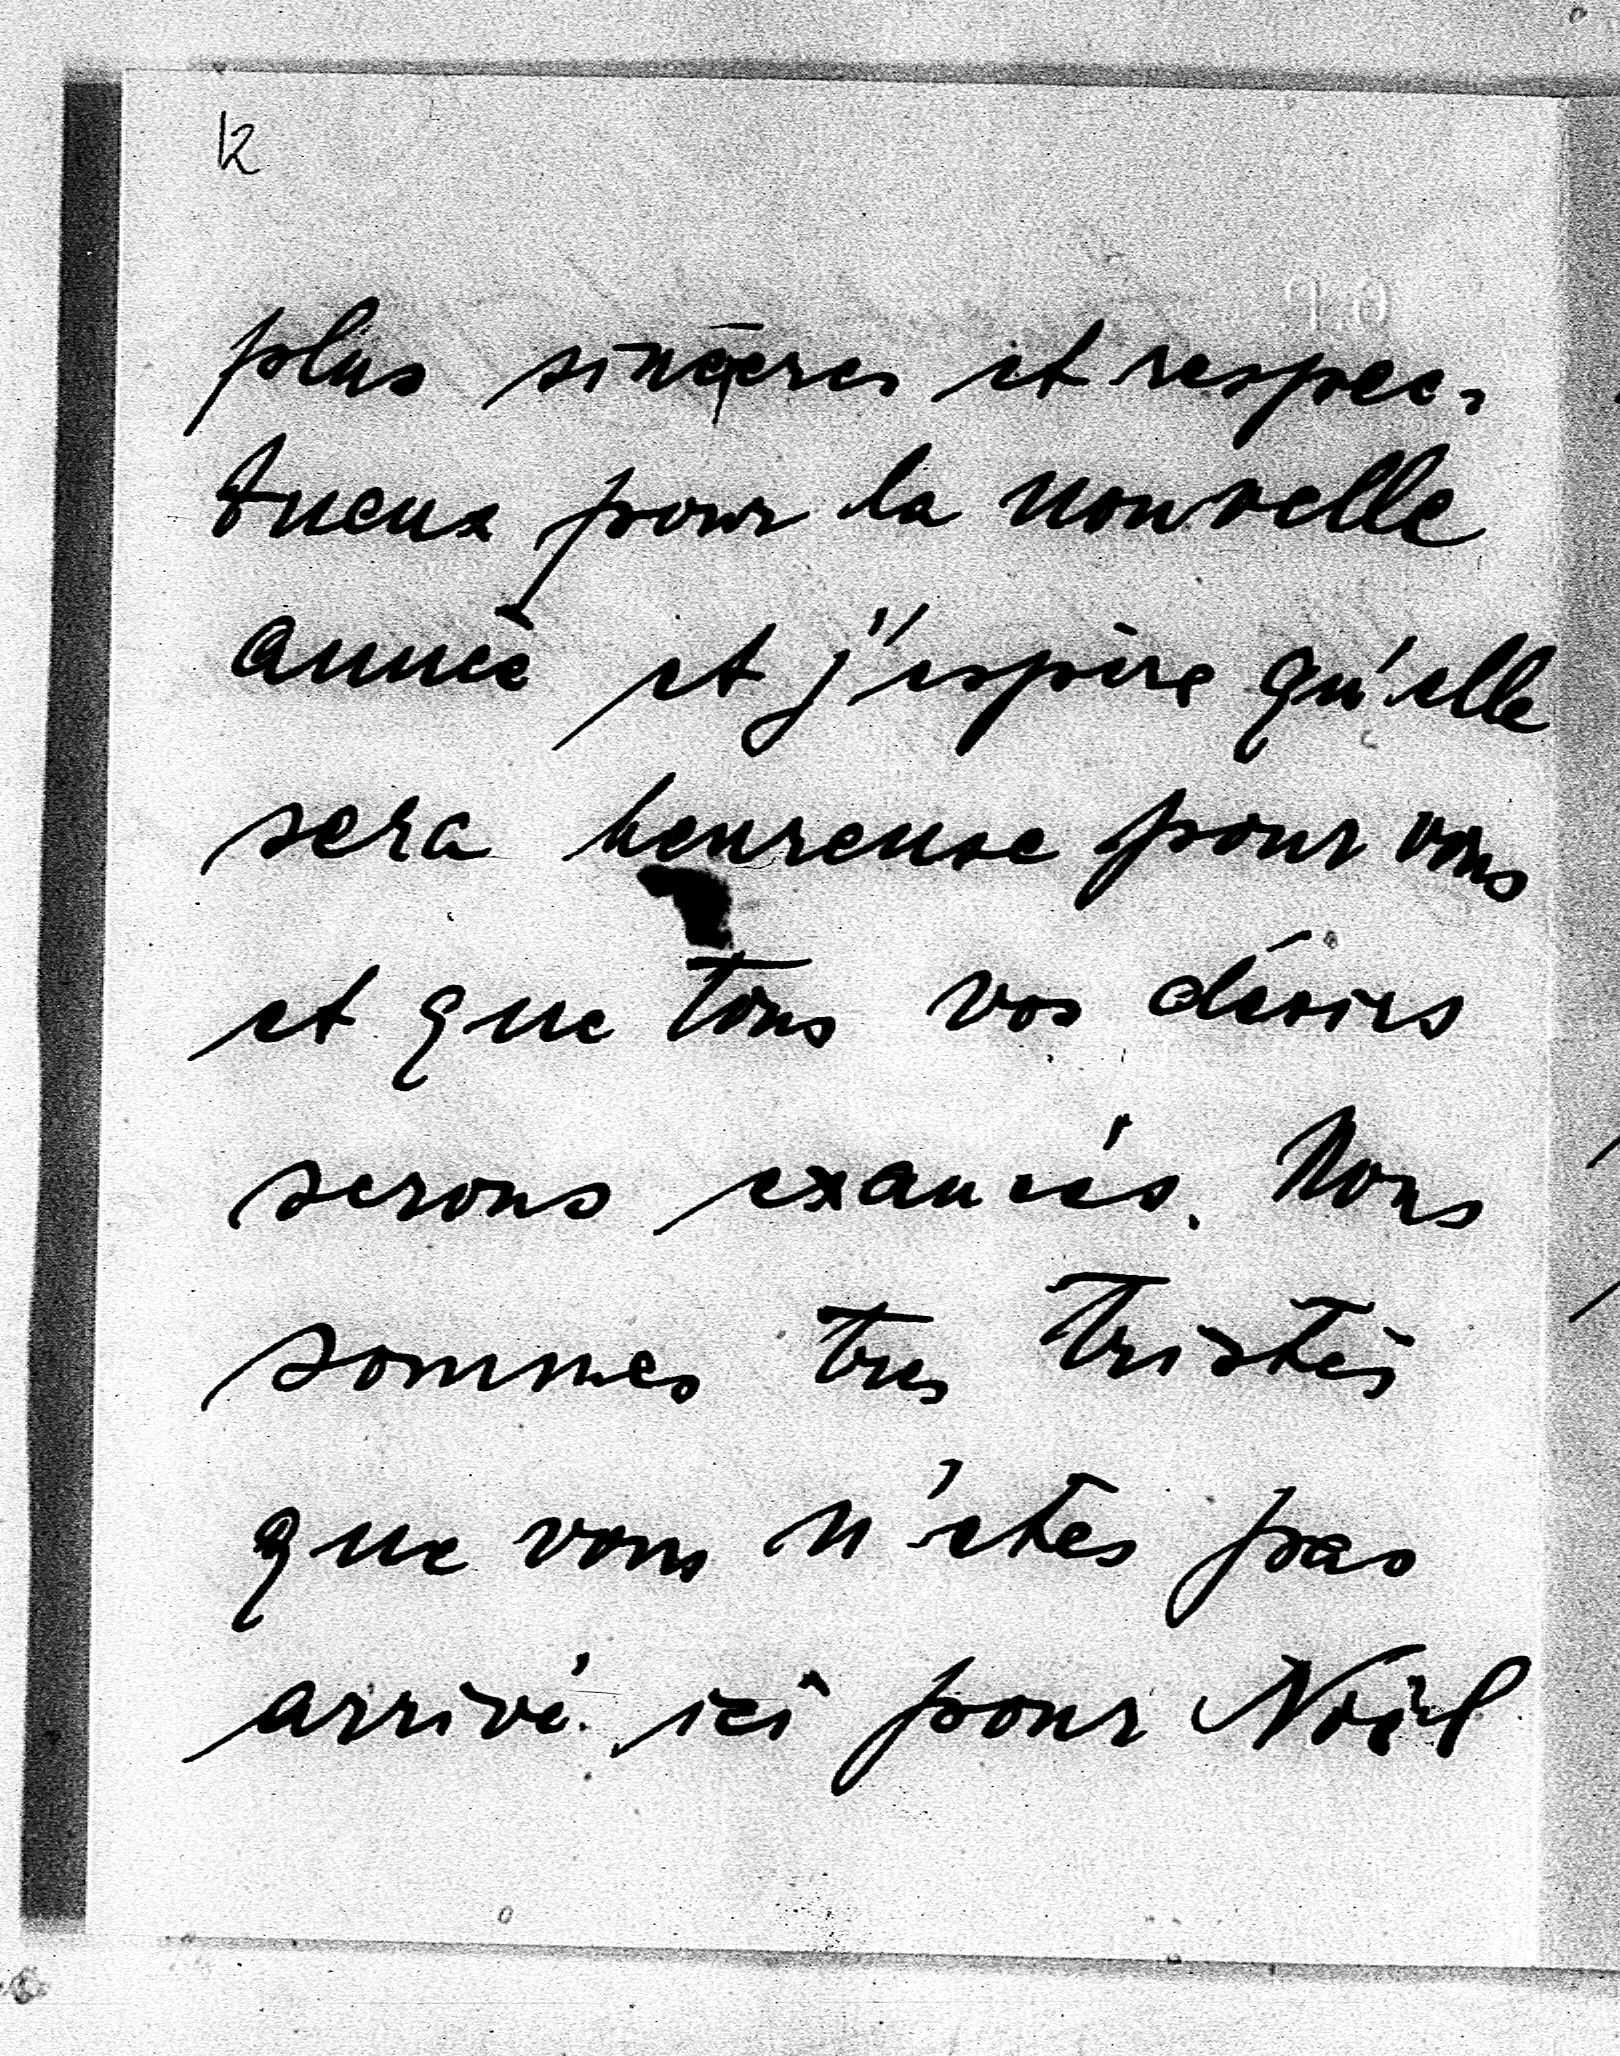 12
plus sincères et respec-
tueux pour la nouvelle
année et j'espère qu'elle
sera heureuse pour vous
et que tous vos désirs
serons exaucés. Nous
sommes tres tristes
que vous n'etes pas
arrivé ici pour Noël